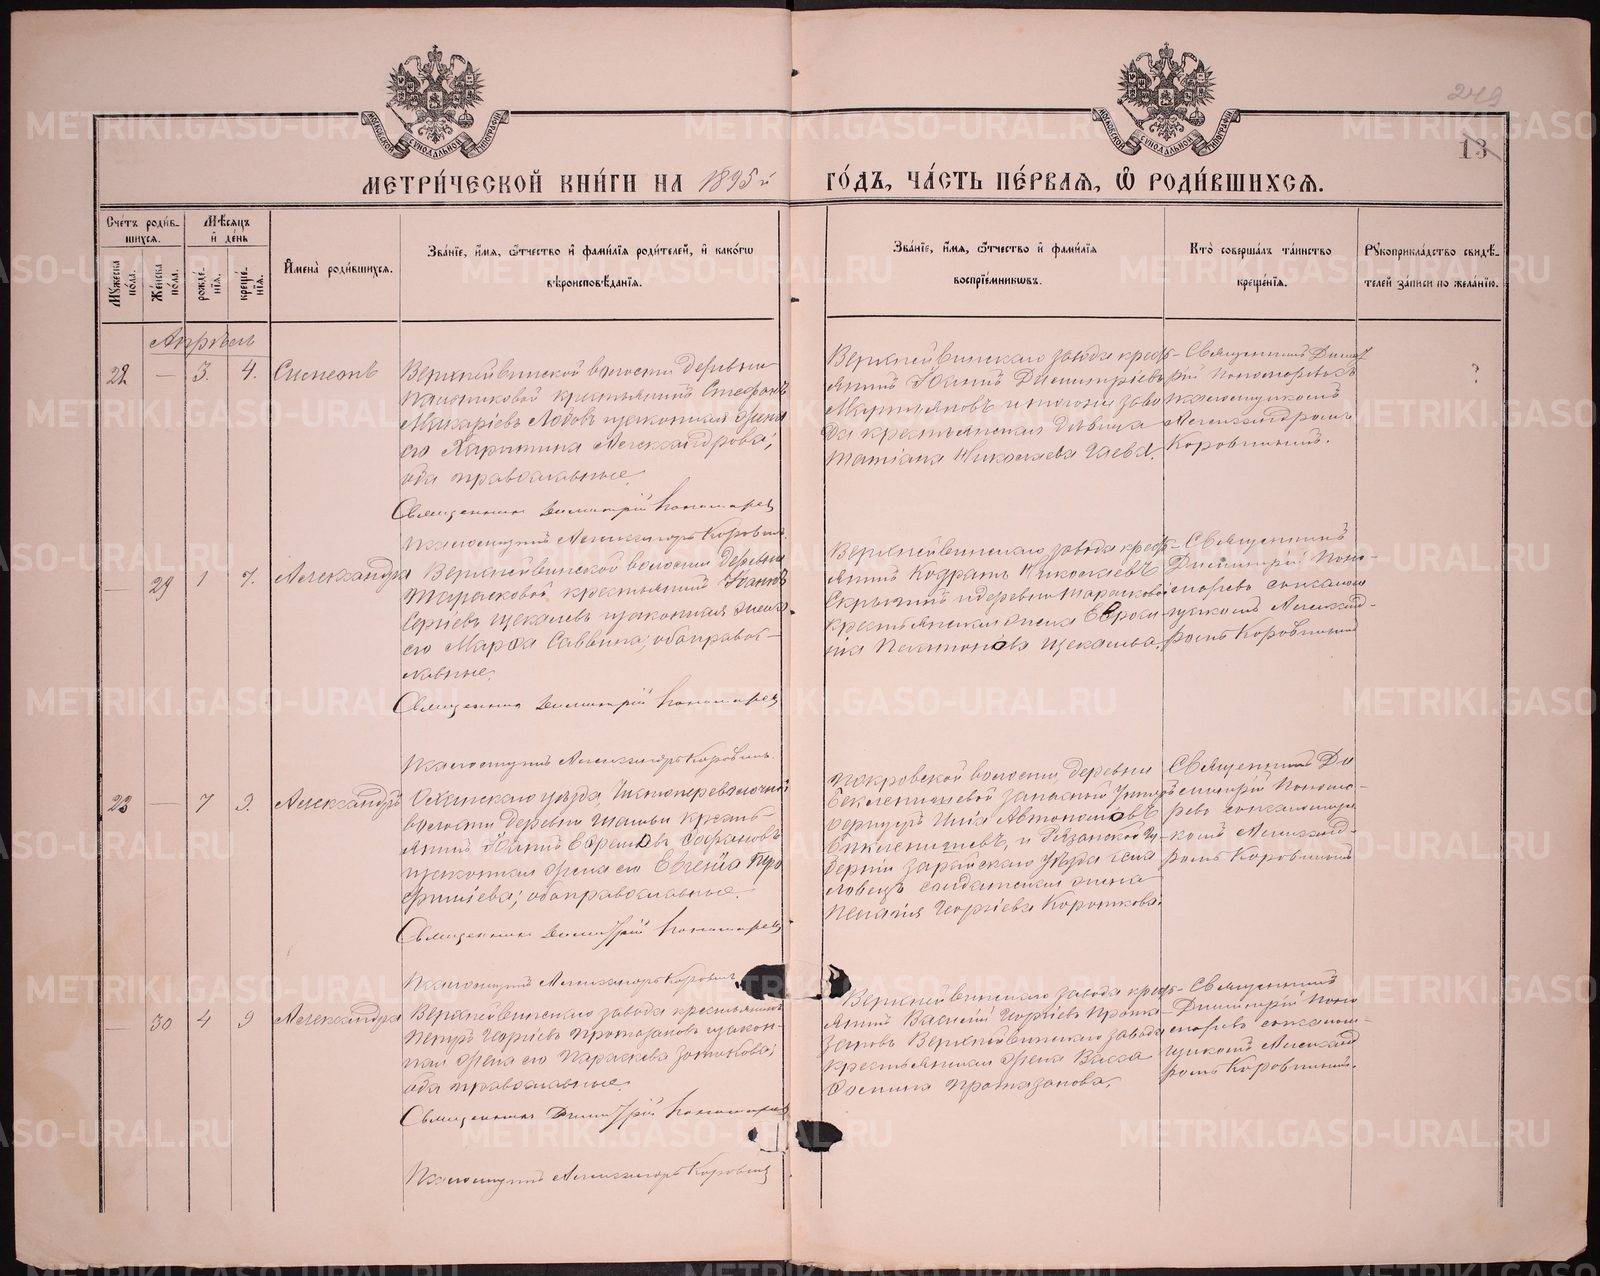 249
13
МОСКОВСКОЙ СУНОДАЛЬНОЙ ТИПОГРАФІИ
МОСКОВСКОЙ СУНОДАЛЬНОЙ ТИПОГРАФІИ
МЕТРИ́ЧЕСКОЙ КНИ́ГИ НА 1895й ГО́ДЪ, ЧА́СТЬ ПЕ́РВАЯ, Ѡ РОДИ́ВШИХСЯ.
Сче́тъ роди́вшихся.
Мѣ́сяцъ и҆ де́нь
Му́жеска по́ла.
Же́нска по́ла.
рожде́нія.
креще́нія.
И҆мена̀ роди́вшихся.
Зва́ніе, и҆́мя, ѻ҆́тчество и҆ фами́лія роди́телей, и҆ како́гѡ вѣроисповѣ́данія.
Зва́ніе, и҆́мя, ѻ҆́тчество и҆ фами́лія воспріе́мникѡвъ.
Кто̀ соверша́лъ та́инство креще́нія.
Рꙋкоприкла́дство свидѣ́телей за́писи по жела́нію.
Апрѣль
22 — 3. 4. Симеонъ
Верхнейвинской волости деревни
крестьянинъ Стефанъ
Макаріевъ Лобовъ и законная жена
его Харитина Александрова;
оба православные.
Священникъ Димитрій Пономаревъ
Псаломщикъ Александръ Коровинъ.
Верхнейвинскаго завода кресть-
янинъ Іоаннъ Димитріевъ
Мартьяновъ и того же заво-
да крестьянская дѣвица
Татіана Николаева Гаева.
Священникъ Димит-
рій Пономаревъ съ
псаломщикомъ
Александромъ
Коровинымъ.
— 29 1 7. Александра
Верхнейвинской волости деревни
Тарасковой крестьянинъ Іоаннъ
Сергіевъ Щекалевъ и законная жена
его Марѳа Саввина; оба правос-
лавные.
Священникъ Димитрій Пономаревъ
Псаломщикъ Александръ Коровинъ.
Верхнейвинскаго завода кресть-
янинъ Кодратъ Николаевъ
Скрыпинъ и деревни Тарасковой
крестьянская жена Евфроси-
нія Щекалева.
Священникъ
Димитрій Поно-
маревъ съ псалом-
щикомъ Александ-
ромъ Коровинымъ
23 — 7 9. Александръ
Осинскаго уѣзда,
волости, деревни кресть-
янинъ Іоаннъ Ефремовъ Сафроновъ
и законная жена его Евгенія Тро-
фимовa; оба православные.
Священникъ Димитрій Пономаревъ
Псаломщикъ Александръ Коровинъ
Покровской волости, деревни
запасный унтеръ-
офицеръ Илія Автономовъ
и Рязанской гу-
берніи Зарайскаго уѣзда села
Ловецъ солдатская жена
Пелагія Георгіева Короткова.
Священникъ Ди-
митрій Понома-
ревъ съ псаломщи-
комъ Александ-
ромъ Коровинымъ
— 30 4 9 Александра
Верхнейвинскаго завода крестьянинъ
Петръ Георгіевъ Протазановъ и закон-
ная жена его Параскева Зотикова;
оба православные.
Священникъ Димитрій Пономаревъ
Псаломщикъ Александръ Коровинъ
Верхнейвинскаго завода кресть-
янинъ Василій Георгіевъ Прота-
зановъ Верхнейвинскаго завода
крестьянская жена Васса
Протазанова.
Священникъ
Димитрій Поно-
маревъ съ псалом-
щикомъ Александ-
ромъ Коровинымъ.
METRIKI.GASO-URAL.RU